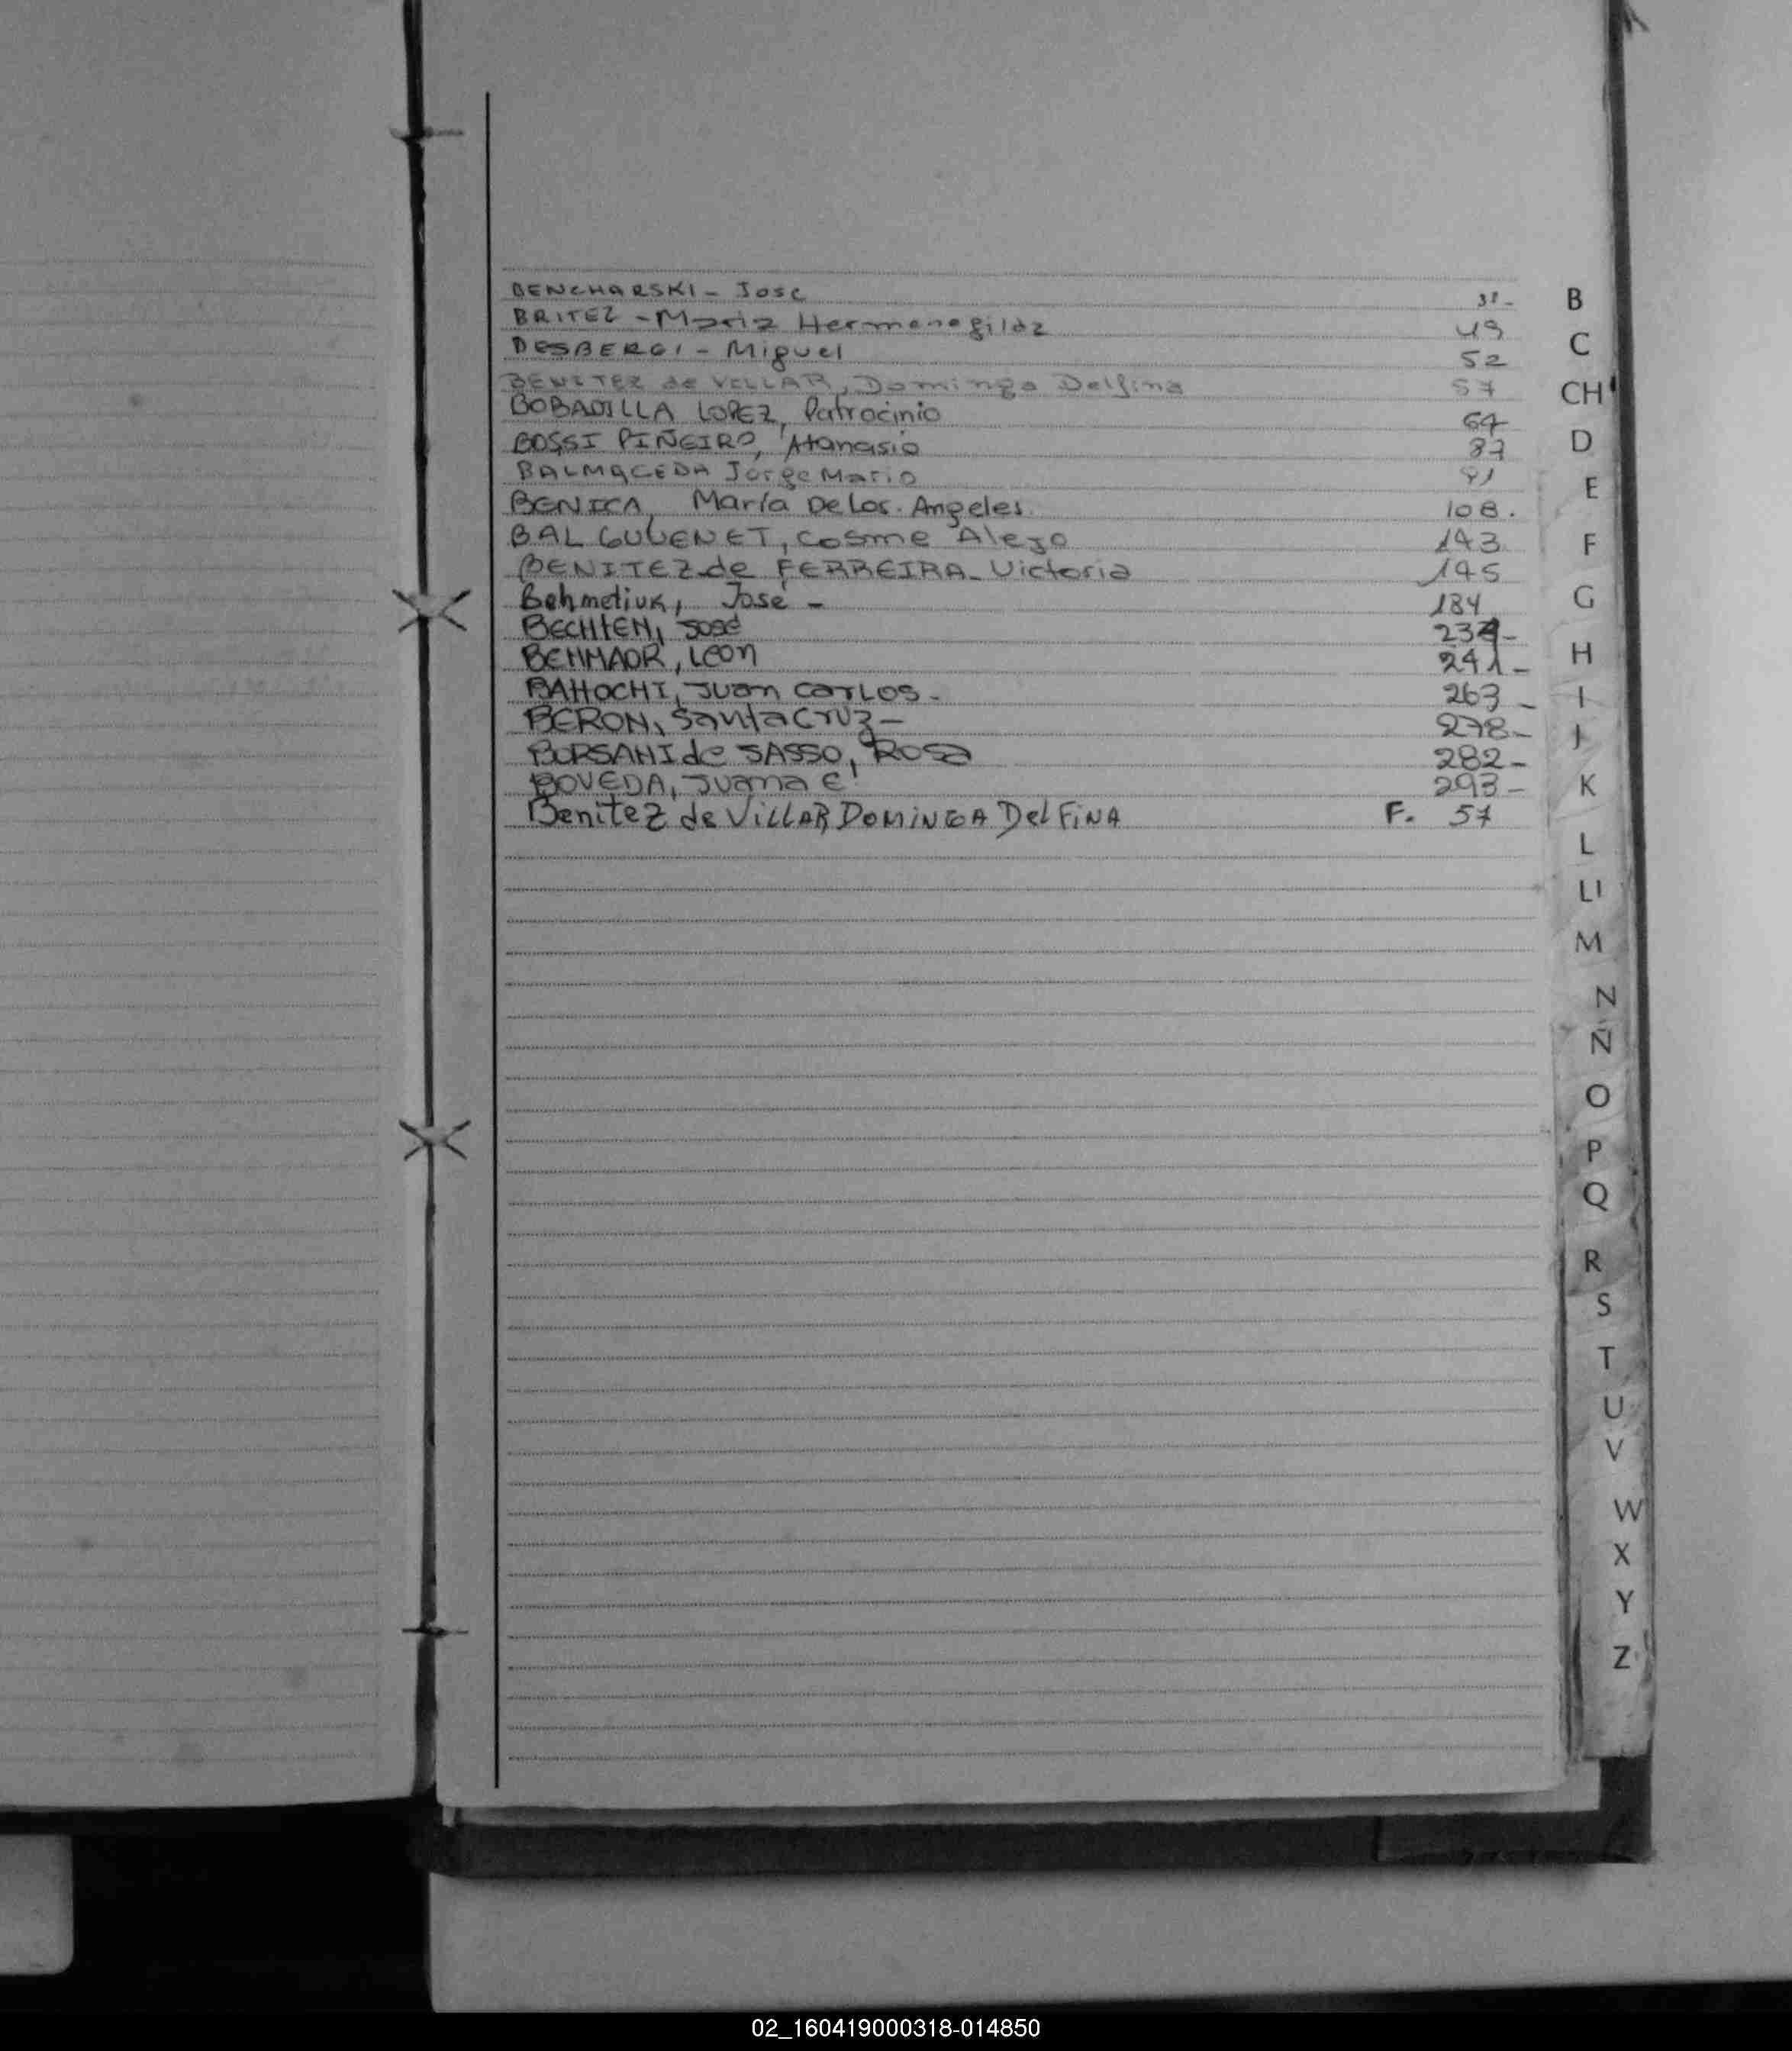 BENCHARSKI - Jose 31-
BRITEZ - Maria Hermenegilda 49
DESBERGI - Miguel 52
BENITEZ de VILLAR, Dominga Delfina 57
BOBADILLA LOPEZ, Patrocinio 67
BOSSI PIÑEIRO, Atanasio 87
BALMACEDA Jorge Mario 91
BENICA, María De Los. Angeles. 108.
BAL GUUENET, Cosme Alejo 143
BENITEZ de FERREIRA - Victoria 145
Behmetiuk, José - 184
BECHTEN, José
BEHMAOR, León 241-
BAHOCHI, Juan CARLOS - 263 -
BERON, Santa CRUZ - 278-
BORSANI de SASSO, ROSA 282-
BOVEDA, Juana E. 293-
Benitez de VILLAR DOMINGA DELFINA F. 57
B
C
CH
D
E
F
G
H
I
J
K
L
Ll
M
N
Ñ
O
P
Q
R
S
T
U
V
W
X
Y
Z
02_160419000318-014850